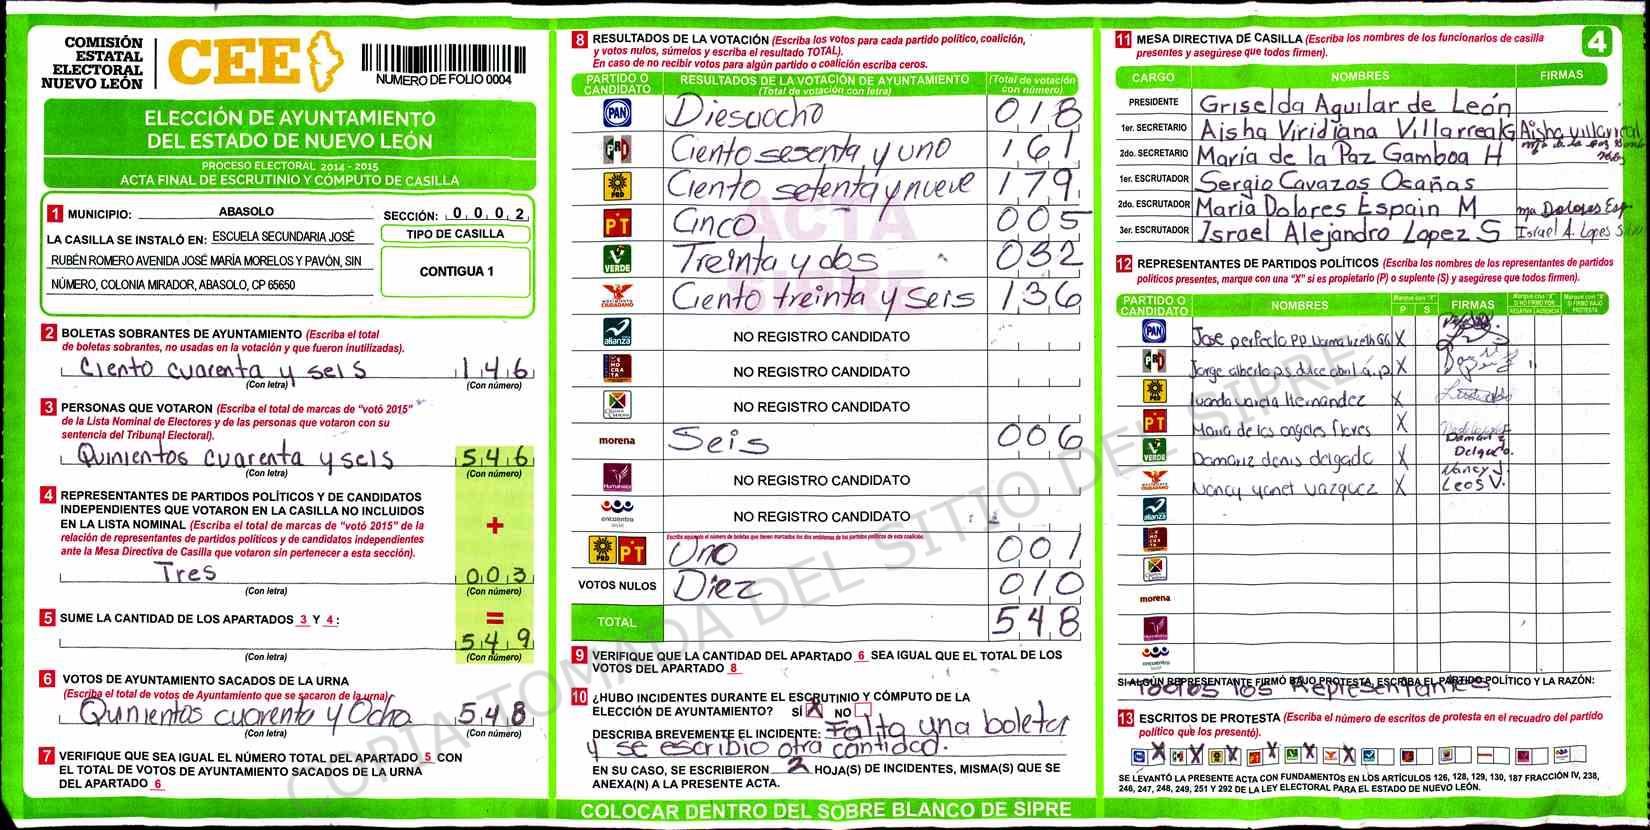 COMISIÓN
ESTATAL
ELECTORAL
NUEVO LEÓN
CEE
NUMERO DE FOLIO 0004
ELECCIÓN DE AYUNTAMIENTO
DEL ESTADO DE NUEVO LEÓN
PROCESO ELECTORAL 2014 - 2015
ACTA FINAL DE ESCRUTINIO Y CÓMPUTO DE CASILLA
1 MUNICIPIO: ABASOLO SECCIÓN: 0 0 0 2
LA CASILLA SE INSTALÓ EN: ESCUELA SECUNDARIA JOSÉ
RUBÉN ROMERO AVENIDA JOSÉ MARÍA MORELOS Y PAVÓN, SIN
NÚMERO, COLONIA MIRADOR, ABASOLO, CP 65650
TIPO DE CASILLA
CONTIGUA 1
2 BOLETAS SOBRANTES DE AYUNTAMIENTO (Escriba el total
de boletas sobrantes, no usadas en la votación y que fueron inutilizadas).
Ciento cuarenta y seis 1 4 6
(Con letra) (Con número)
3 PERSONAS QUE VOTARON (Escriba el total de marcas de "votó 2015"
de la Lista Nominal de Electores y de las personas que votaron con su
sentencia del Tribunal Electoral).
Quinientos cuarenta y seis 5 4 6
(Con letra) (Con número)
4 REPRESENTANTES DE PARTIDOS POLÍTICOS Y DE CANDIDATOS
INDEPENDIENTES QUE VOTARON EN LA CASILLA NO INCLUIDOS
EN LA LISTA NOMINAL (Escriba el total de marcas de "votó 2015" de la
relación de representantes de partidos políticos y de candidatos independientes
ante la Mesa Directiva de Casilla que votaron sin pertenecer a esta sección).
+
Tres 0 0 3
(Con letra) (Con número)
=
5 SUME LA CANTIDAD DE LOS APARTADOS 3 Y 4:
5 4 9
(Con letra) (Con número)
6 VOTOS DE AYUNTAMIENTO SACADOS DE LA URNA
(Escriba el total de votos de Ayuntamiento que se sacaron de la urna)
Qunientos cuarenta y Ocho 5 4 8
(Con letra) (Con número)
7 VERIFIQUE QUE SEA IGUAL EL NÚMERO TOTAL DEL APARTADO 5 CON
EL TOTAL DE VOTOS DE AYUNTAMIENTO SACADOS DE LA URNA
DEL APARTADO 6
8 RESULTADOS DE LA VOTACIÓN (Escriba los votos para cada partido político, coalición,
y votos nulos, súmelos y escriba el resultado TOTAL).
En caso de no recibir votos para algún partido o coalición escriba ceros.
PARTIDO O CANDIDATO
RESULTADOS DE LA VOTACIÓN DE AYUNTAMIENTO
(Total de votación con letra)
(Total de votación con número)
PAN Diesciocho 0 1 8
PRI Ciento sesenta y uno 1 6 1
PRD Ciento setenta y nueve 1 7 9
PT Cinco 0 0 5
VERDE Treinta y dos 0 3 2
MOVIMIENTO CIUDADANO Ciento treinta y seis 1 3 6
alianza NO REGISTRO CANDIDATO
NO REGISTRO CANDIDATO
NO REGISTRO CANDIDATO
morena Seis 0 0 6
Humanista NO REGISTRO CANDIDATO
encuentro social NO REGISTRO CANDIDATO
PRD PT Uno 0 0 1
VOTOS NULOS Diez 0 1 0
TOTAL 5 4 8
ACTA
SIPRE
9 VERIFIQUE QUE LA CANTIDAD DEL APARTADO 6 SEA IGUAL QUE EL TOTAL DE LOS
VOTOS DEL APARTADO 8
10 ¿HUBO INCIDENTES DURANTE EL ESCRUTINIO Y CÓMPUTO DE LA
ELECCIÓN DE AYUNTAMIENTO? SÍ X NO
DESCRIBA BREVEMENTE EL INCIDENTE: Falta una boleta
y se escribio otra cantidad.
EN SU CASO, SE ESCRIBIERON 2 HOJA(S) DE INCIDENTES, MISMA(S) QUE SE
ANEXA(N) A LA PRESENTE ACTA.
COLOCAR DENTRO DEL SOBRE BLANCO DE SIPRE
11 MESA DIRECTIVA DE CASILLA (Escriba los nombres de los funcionarios de casilla
presentes y asegúrese que todos firmen).
4
CARGO NOMBRES FIRMAS
PRESIDENTE Griselda Aguilar de León
1er. SECRETARIO Aisha Viridiana Villarreal G Aisha villarreal
2do. SECRETARIO María de la Paz Gamboa H
1er. ESCRUTADOR Sergio Cavazos Ocañas
2do. ESCRUTADOR Maria Dolores Espain M ma Dolores Esp
3er. ESCRUTADOR Israel Alejandro Lopez S Israel A. Lopes
12 REPRESENTANTES DE PARTIDOS POLÍTICOS (Escriba los nombres de los representantes de partidos
políticos presentes, marque con una "X" si es propietario (P) o suplente (S) y asegúrese que todos firmen).
PARTIDO O CANDIDATO NOMBRES Marque con "X" P S FIRMAS
PAN Jose perfecto X
PRI Jorge alberto X
PRD Hernandez X
PT Maria de los angeles flores X
VERDE Damariz denis delgado X Damariz Delgado.
Nancy yanet vazquez X Nancy J. Leos V.
alianza
morena
Humanista
encuentro social
SI ALGÚN REPRESENTANTE FIRMÓ BAJO PROTESTA, ESCRIBA EL PARTIDO POLÍTICO Y LA RAZÓN:
Todos los Representantes
13 ESCRITOS DE PROTESTA (Escriba el número de escritos de protesta en el recuadro del partido
político que los presentó).
X X X X X X
SE LEVANTÓ LA PRESENTE ACTA CON FUNDAMENTOS EN LOS ARTÍCULOS 126, 128, 129, 130, 187 FRACCIÓN IV, 238,
246, 247, 248, 249, 251 Y 292 DE LA LEY ELECTORAL PARA EL ESTADO DE NUEVO LEÓN.
COPIA TOMADA DEL SITIO DEL SIPRE